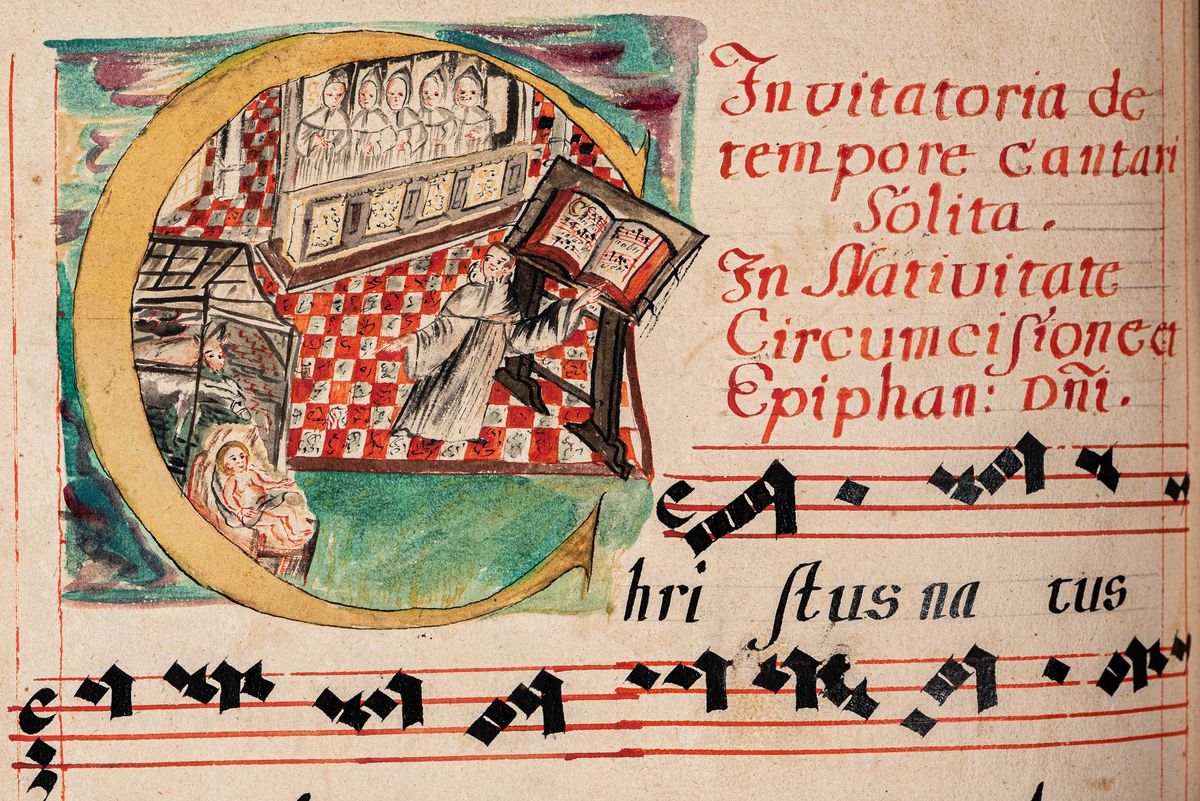 Invitatoria de
tempore Cantari
Solita.
In Nativitate
Circumcisione et
Epiphan: Dñi.
Chri stus na tus